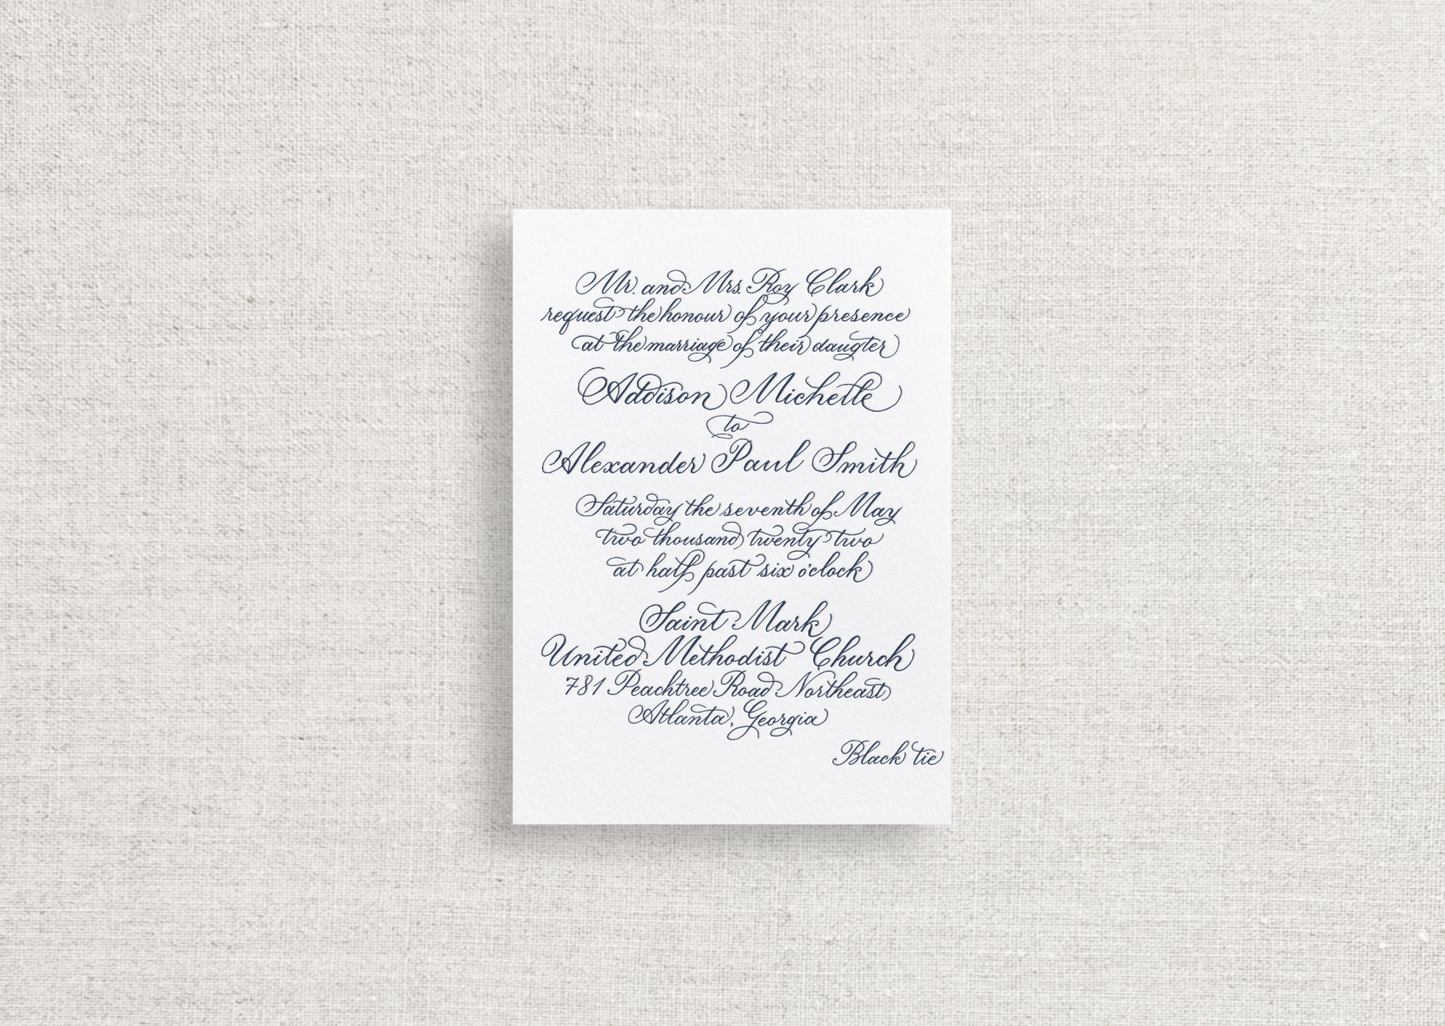 Mr. and Mrs. Roy Clark
request the honour of your presence
at the marriage of their daugter
Addison Michelle
to
Alexander Paul Smith
Saturday the seventh of May
two thousand twenty two
at half past six o'clock
Saint Mark
United Methodist Church
781 Peachtree Road Northeast
Atlanta, Georgia
Black tie